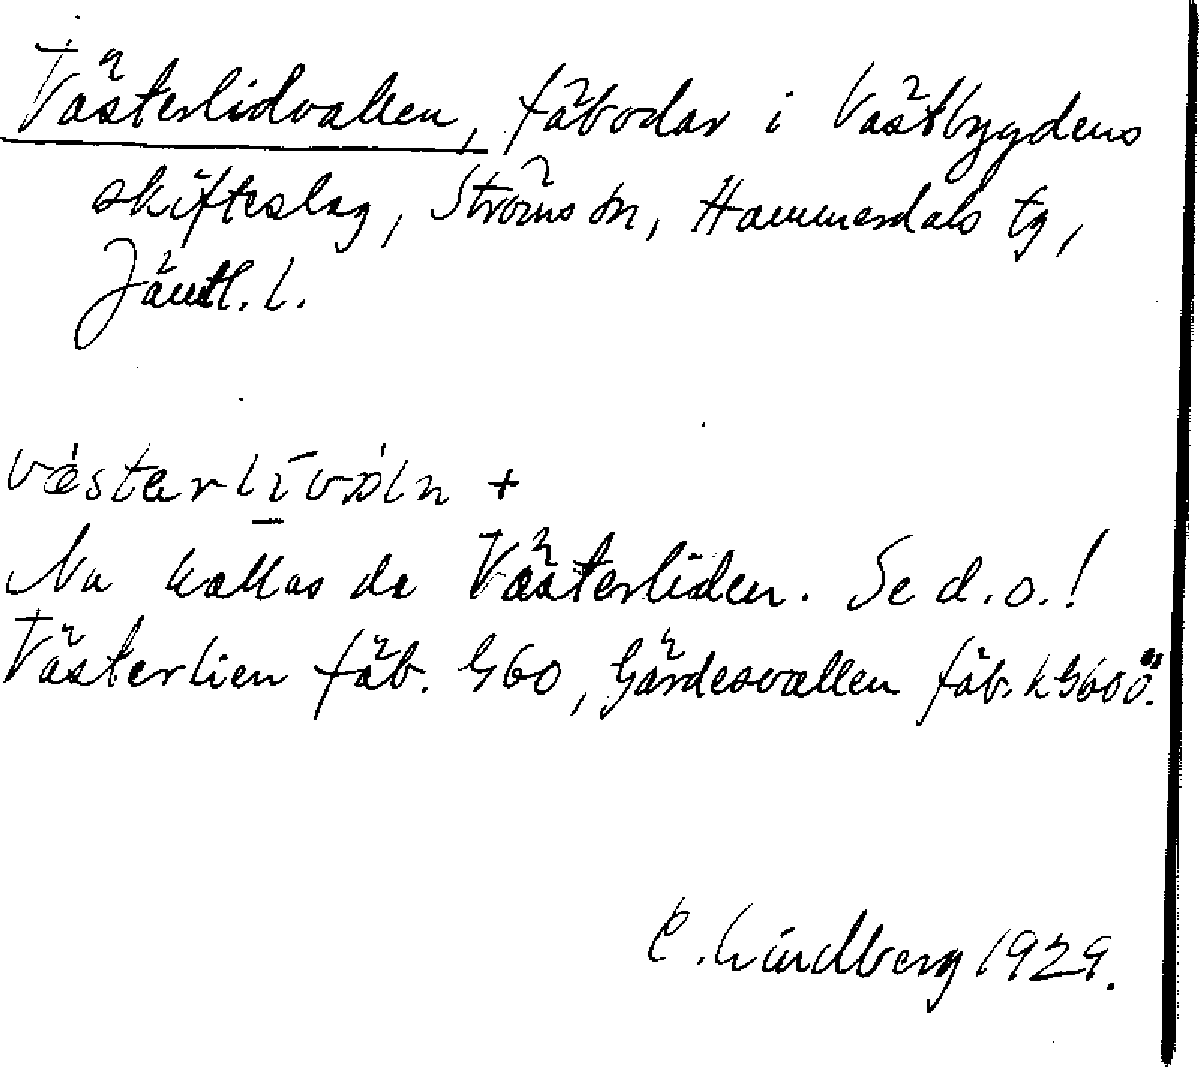 Västerlidvallen, fäbodar i Västbygdens
skifteslag, Ströms sn, Hammerdals tg,
Jämtl. l.
+
Nu kallas de Västerliden. Se d.o.!
Västerlien fäb. G60, Gärdesvallen fäb.
C. Lindberg 1929.